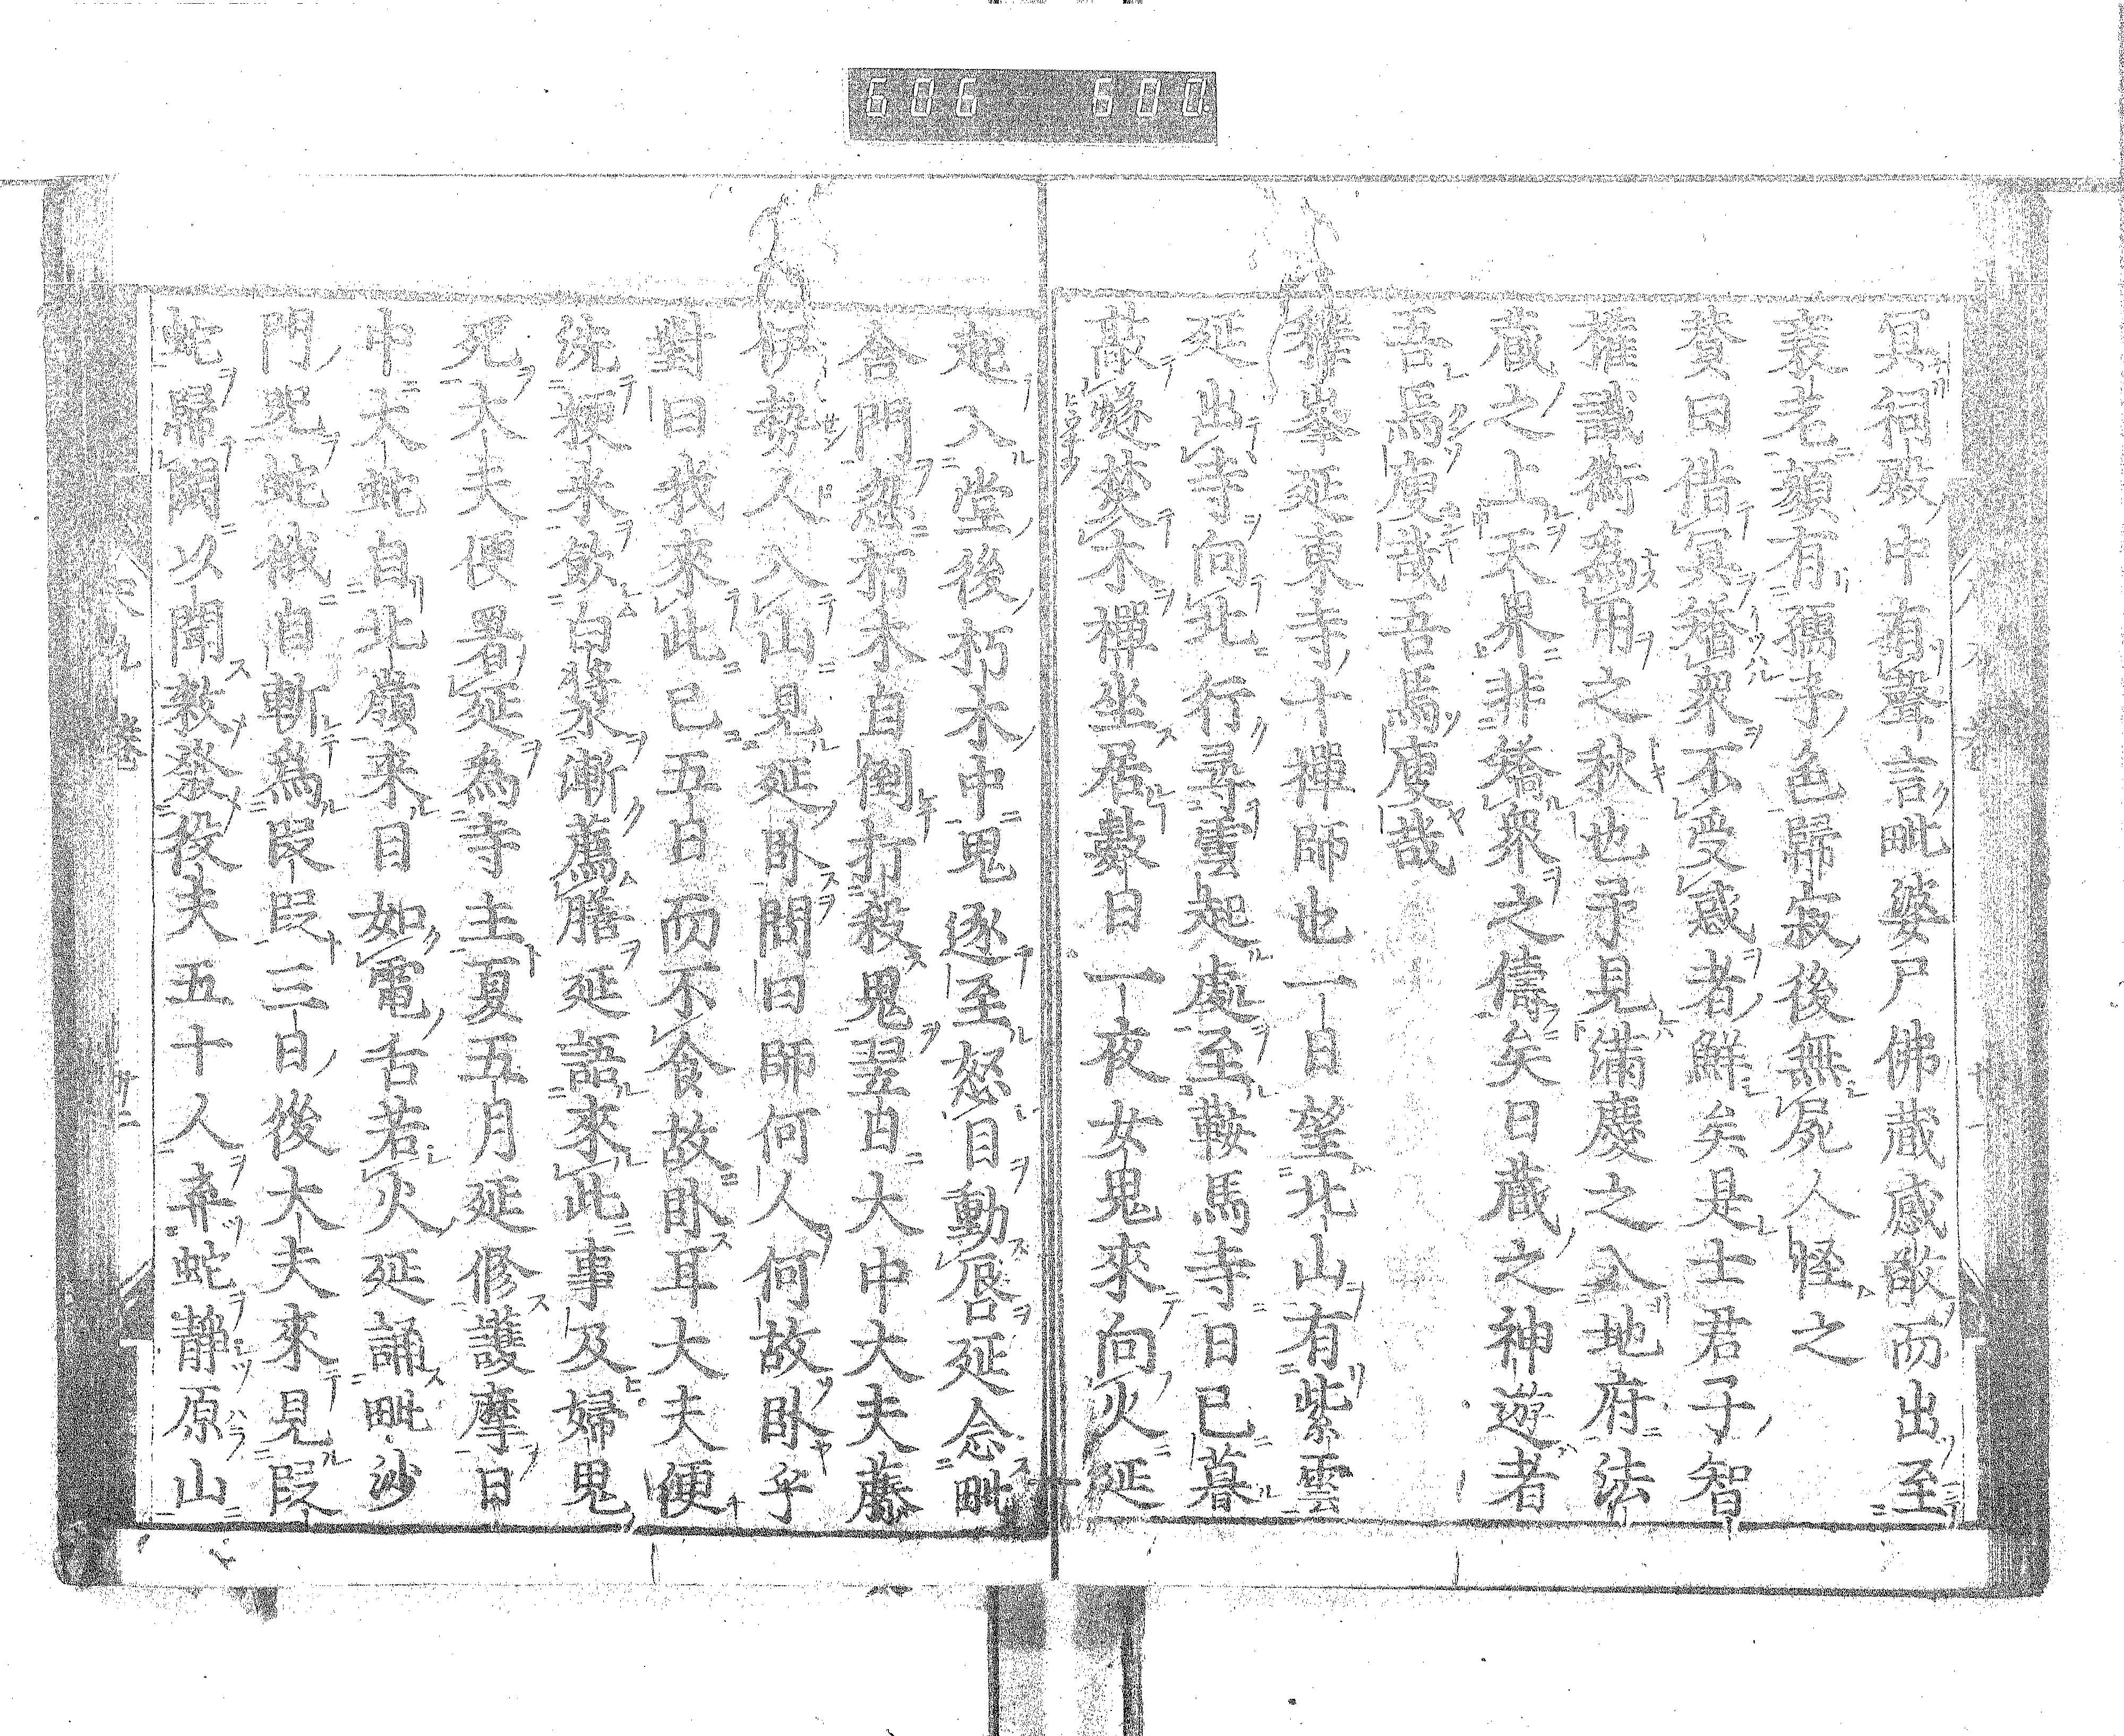 606 - 600
冥祠殿中有聲言毗婆尸佛藏感敬而出至
衰老顏有孺子色歸寂後無屍人怪之
賛曰借冥矯衆不受惑者鮮矣是士君子智
權識術為用之秋也予見滿慶之入地府法
藏之上天界非矯衆之儔矣日藏之神遊者
吾焉廋哉吾焉廋哉
釋峯延東寺十禪師也一日望北山有紫雲
延出寺向北行尋雲起處至鞍馬寺日已暮
敲燧焚木禪坐居數日一夜女鬼來向火延
起入堂後朽木中鬼逐至怒目動唇延念毗
舍門忽朽木自倒打殺鬼翌日大中大夫藤
伊勢人入山見延卧問曰師何人何故卧乎
對曰我來此已五日而不食故卧耳大夫便
洗粳米飲白漿漸薦膳延語來此事及婦鬼
死大夫便署延為寺主夏五月延修護摩日
中大蛇自北嶺來目如電舌若火延誦毗沙
門咒蛇俄自斬為段段三日後大夫來見段
蛇歸聞以聞敕發役夫五十人弃蛇靜原山